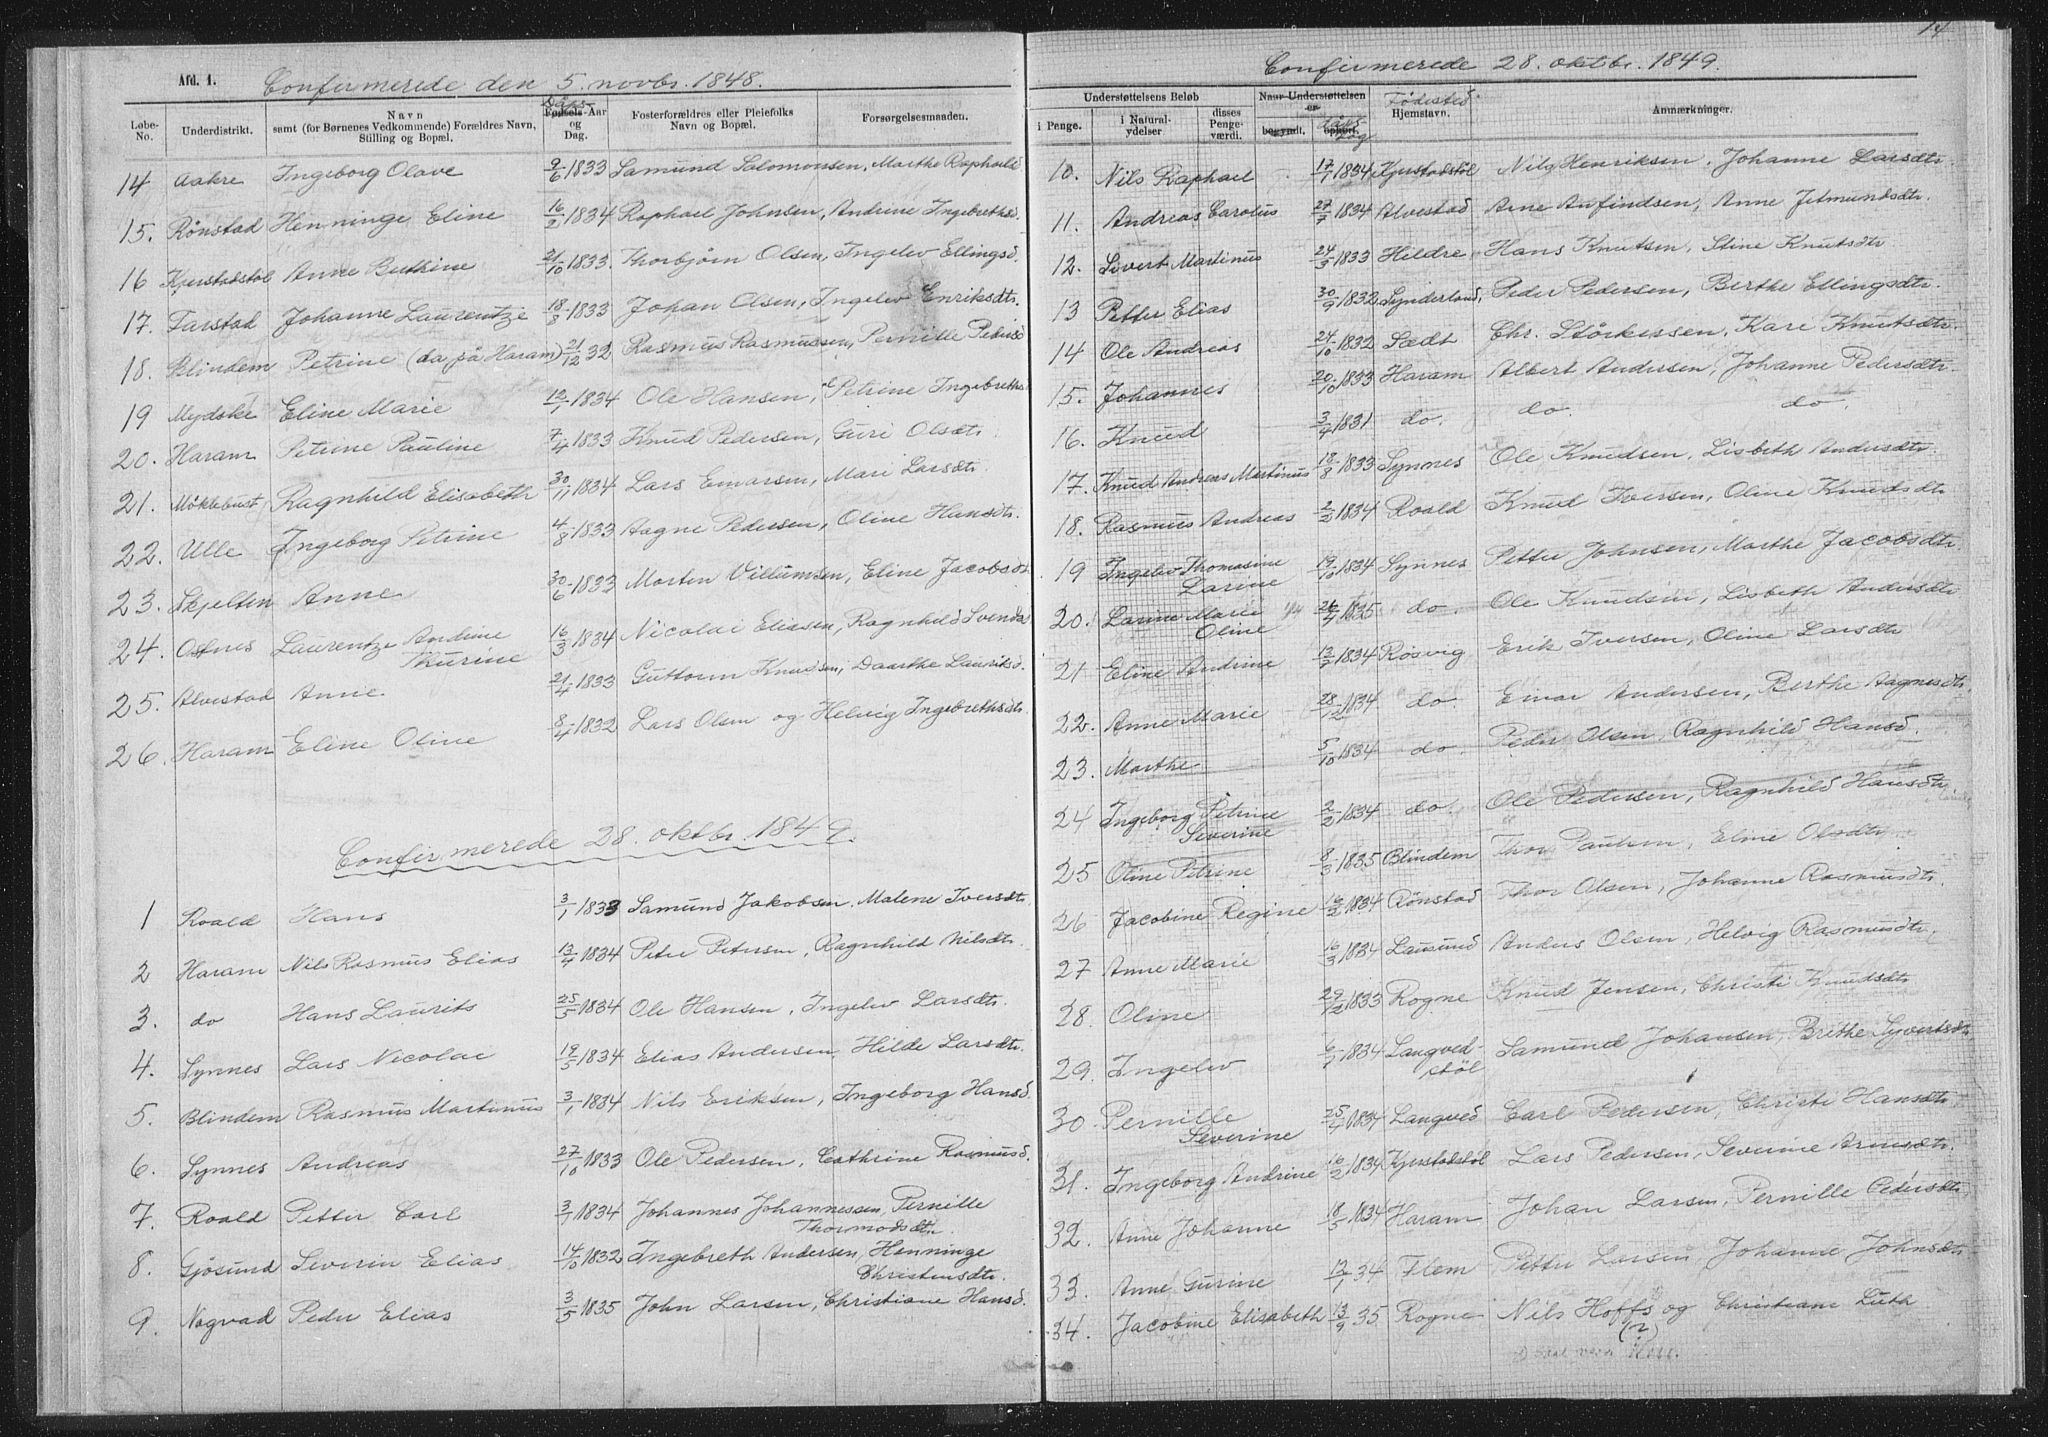 Afd. 1. Confirmerede den 5. novbr. 1848.
Løbe-No. Underdistrikt. Navn samt (for Børnenes Vedkommende) Forældres Navn, Stilling og Bopæl. Daabs- Fødsels-Aar og Dag. Fosterforældres eller Pleiefolks Navn og Bopæl. Forsørgelsesmaaden.
14 Aakre Ingeborg Olave 9/6 1833 Samund Salomonsen, Marthe Raphaelsd
15. Rønstad Henninge Eline 16/2 1834 Raphael Johnsen, Andrine Ingebrethsd.
16 Kjerstadstøl Anne Buthine 21/10 1833. Thorbjørn Olsen, Ingelev Ellingsd.
17. Farstad Johanne Laurentze 18/8 1833 Johan Olsen, Ingelev Enriksdtr.
18. Blindem Petrine (da på Haram) 21/12 32 Rasmus Rasmussen, Pernille Pedersd
19 Mydske Eline Marie 12/1 1834 Ole Hansen, Petrine Ingebrethsd
20. Haram Petrine Pauline 7/4 1833 Knud Pedersen, Guri Olsdtr.
21. Møklebust Ragnhild Elisabeth 30/11 1834 Lars Einarsen, Mari Larsdtr.
22. Ulle Ingeborg Petrine 4/8 1833 Aagne Pedersen, Oline Hansdtr.
23. Skjelten Anne 30/6 1833 Morten Villumsen, Eline Jacobsdt.
24. Ostnes Laurentze Andrine Thurine 16/3 1834 Nicolai Eliasen, Ragnhild Svendsd
25. Alvestad Anne 21/4 1833 Guttorm Knudsen, Daarthe Lauritsd.
26. Haram Eline Oline 8/4 1832 Lars Olsen og Helvig Ingebrethsdtr.
Confirmerede 28. oktbr. 1849.
1 Roald Hans 3/1 1833 Samund Jakobsen, Malene Iversdtr.
2 Haram Nils Rasmus Elias 13/4 1834 Peter Petersen, Ragnhild Nilsdtr.
3. do Hans Laurits 25/5 1834 Ole Hansen, Ingelev Larsdtr.
4. Synnes Lars Nicolai 19/5 1834 Elias Andersen, Hilde Larsdtr.
5. Blindem Rasmus Martinus 3/1 1834 Nils Eriksen, Ingeborg Hansd.
6. Synnes Andreas 27/10 1833 Ole Pedersen, Cathrine Rasmusd.
7. Roald Petter Carl 3/1 1834 Johannes Johannessen, Pernille Thormodsdtr.
8. Gjøsund Severin Elias 14/10 1832 Ingebreth Andersen, Henninge Christensdtr.
9. Nogvad Peder Elias 3/5 1835 John Larsen, Christiane Hansd.
14
Confirmerede 28. oktbr. 1849.
Understøttelsens Beløb i Penge. i Naturalydelser disses Pengeværdi. Naar Understøttelsen er begyndt. ophørt. dåbsdag Fødested Hjemstavn. Anmærkninger.
10. Nils Raphael 17/1 1834 Kjerstadstøl Nils Henriksen, Johanne Larsdtr.
11. Andreas Carolus 27/7 1834 Alvestad Arne Anfindsen, Anne Jetmundsdtr.
12. Sivert Martinus 24/3 1833 Hildre Hans Knutsen, Stine Knutsdtr
13 Petter Elias 30/9 1832 Synderland, Peder Pedersen, Berthe Ellingsdtr.
14 Ole Andreas 24/10 1832 Sædt Chr. Størkersen, Kare Knutsdtr.
15. Johannes 20/10 1833 Haram Albert Andersen, Johanne Pedersdtr.
16. Knud 3/4 1831 do. do. do.
17. Knud Andreas Martinus 18/8 1833 Synnes Ole Knudsen, Lisbeth Andersdtr.
18. Rasmus Andreas 2/2 1834 Roald Knud Iversen, Oline Knudsdtr
19 Ingelev Thomasine Larine 19/10 1834 Synnes Petter Johnsen, Marthe Jacobsdtr
20. Larine Marie Oline 26/4 1835 do. Ole Knudsen, Lisbeth Andersdtr
21 Eline Andrine 13/7 1834 Røsvig Erik Iversen, Oline Larsdtr
22. Anne Marie 28/12 1834 do. Einar Andersen, Berthe Aagnesdtr.
23. Marthe 5/10 1834 do. Peder Olsen, Ragnhild Hansd.
24 Ingeborg Petrine Severine 2/2 1834 do. Ole Pedersen, Ragnhild Hansdtr.
25 Oline Petrine 8/3 1835 Blindem Thor Paulsen, Eline Olsdtr.
26 Jacobine Regine 16/2 1834 Rønstad Thor Olsen, Johanne Rasmusdtr.
27 Anne Marie 16/3 1834 Lausund Anders Olsen, Helvig Rasmusdtr.
28. Oline 29/12 1833 Rogne Knud Jensen, Christi Knudsdtr
29. Ingelev 6/1 1834 Langvedstøl Samund Johansen, Brithe Syvertsdtr
30. Pernille Severine 25/4 1834 Langved Carl Petersen, Christi Hansdtr
31. Ingeborg Andrine 16/2 1834 Kjerstadstøl Lars Pedersen, Severine Arnesdtr.
32. Anne Johanne 18/5 1834 Haram Johan Larsen, Pernille Pedersdtr.
33. Anne Gurine 12/1 34 Flem Petter Larsen, Johanne Johnsdtr
34. Jacobine Elisabeth 13/9 35 Rogne Nils Hoffs og Christiane Luth
(?)